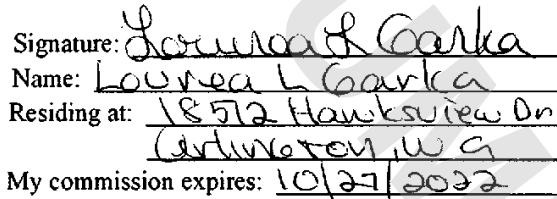 Signature: Lourea L Garka
Name: Lourea L Garka
Residing at: 18512 Hawksview Dr
Arlington, WA
My commission expires: 10/27/2022